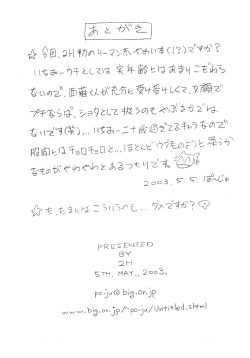 あとがき
☆ 今回、2H初のリーマンネタやわい本(!?)ですか?
いちおーウチとしては実年齢とはあまりこだわら
ないので、斎藤くんが充分と受け受けしくて、女顔で
プチならば、ショタとして扱うのもやぶさかでは
ないです(笑)…いちおー二十歳過ぎてるキャラなので
股間にはチョロチョロと…ほとんどウブ毛のようと柔らか
なものがやわやわとあるつもりです。
2003.5.5. ぽーじゅ
☆ も、たまにはこういうのも…ダメですか?
PRESENTED
BY
2H
5TH. MAY., 2003.
po-ju@big.or.jp
www.big.or.jp/~po-ju/Untitled.shtml